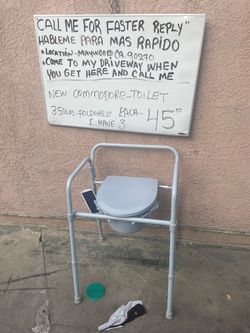 CALL ME FOR FASTER REPLY"
HABLEME PARA MAS RAPIDO
• LOCATION - MAYWOOD CA. 90270
• COME TO MY DRIVEWAY WHEN
YOU GET HERE AND CALL ME
NEW COMMODORE-TOILET
350LBS-FOLDABLE EACH - 45
I HAVE 3